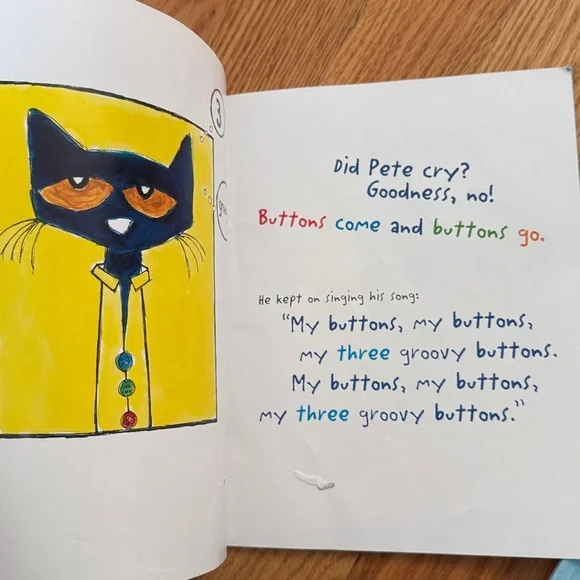 3
Did Pete cry?
Goodness, no!
Buttons come and buttons go.
He kept on singing his song:
"My buttons, my buttons,
my three groovy buttons.
My buttons, my buttons,
my three groovy buttons."